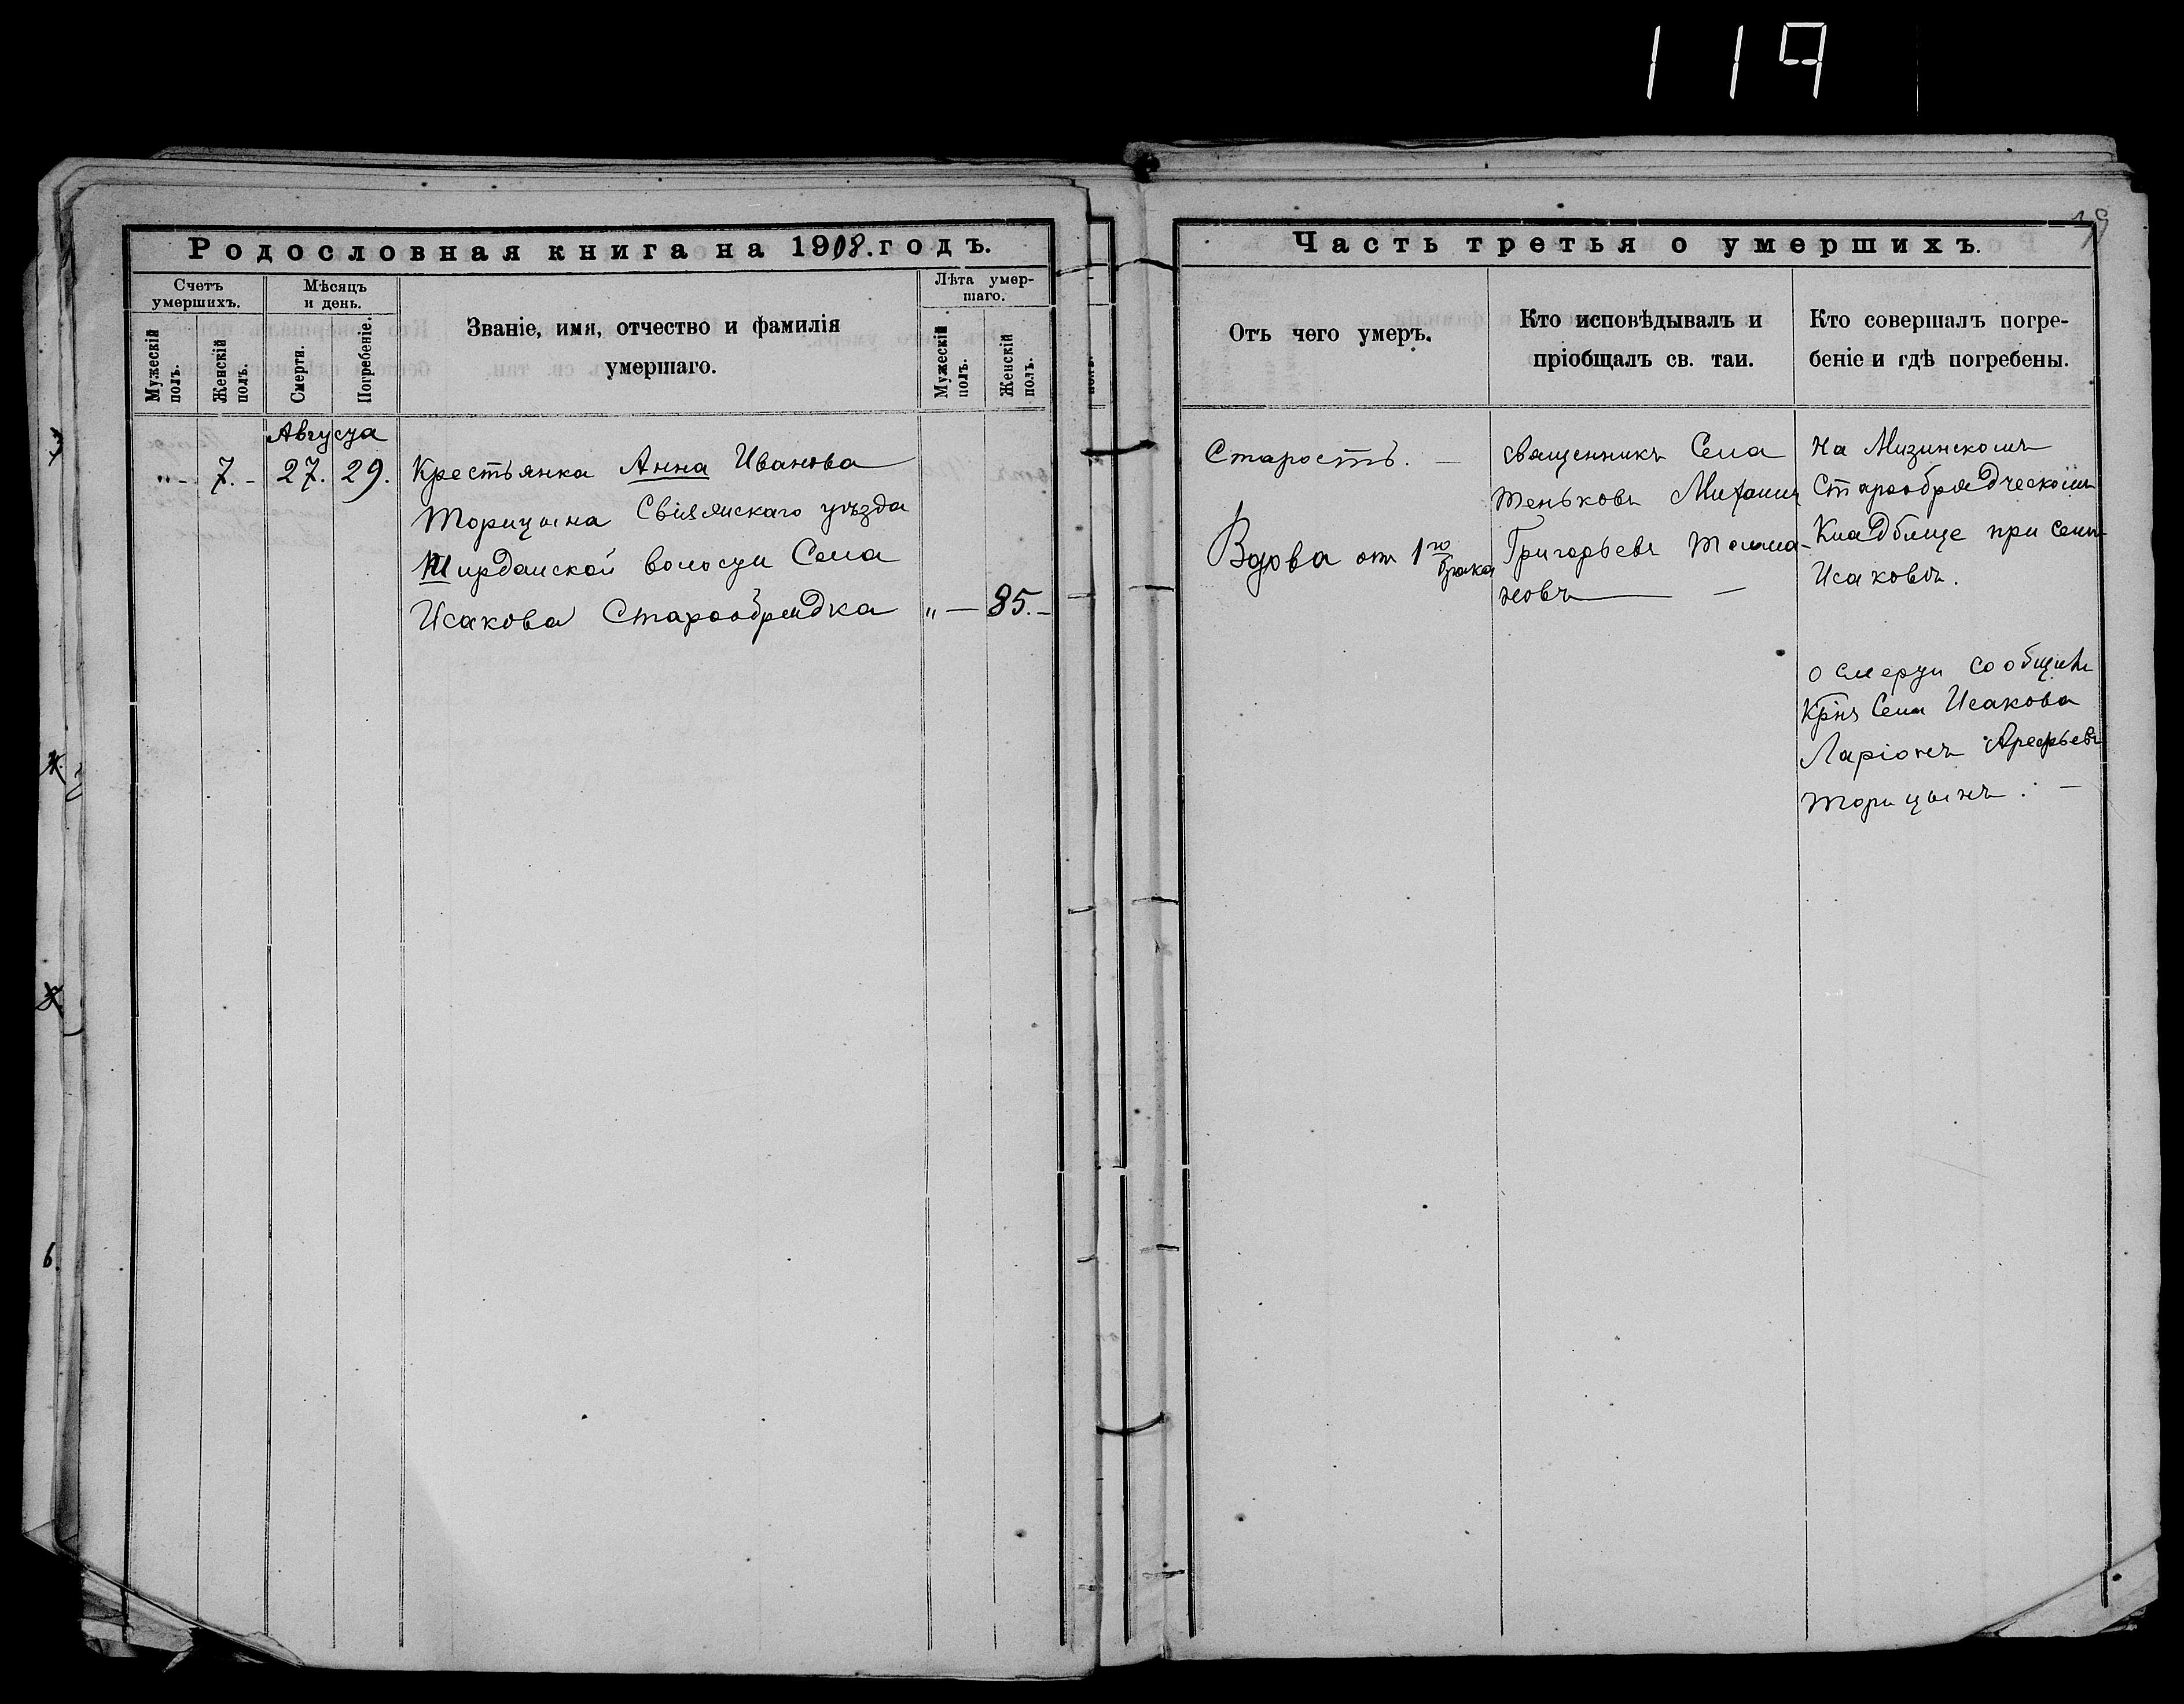 119
19
Родословная книга на 1908. годъ.
Счетъ умершихъ.
Мужескій полъ.
Женскій полъ.
Мѣсяцъ и день.
Смерти.
Погребеніе.
Званіе, имя, отчество и фамилія
умершаго.
Лѣта умер-
шаго.
Мужескій полъ.
Женскій полъ.
Августа
„ - 7. - 27. 29.
Крестьянка Анна Иванова
Торицына Свіяжскаго уѣзда
Ширданской волости Села
Исакова Старообрядка „ — 85. –
Часть третья о умершихъ.
Отъ чего умеръ.
Кто исповѣдывалъ и
пріобщалъ св. таи.
Кто совершалъ погре-
беніе и гдѣ погребены.
Старость. —
Вдова от 1го брака
Священникъ Села
Теньковъ Михаилъ
Григорьевъ
новъ — —
На Мизинскомъ
Старообрядческомъ
Кладбище при Селѣ
Исаковѣ.
о смерти сообщилъ
Крнъ Села Исакова
Ларіонъ Арефьевъ
Торицынъ. —
6.